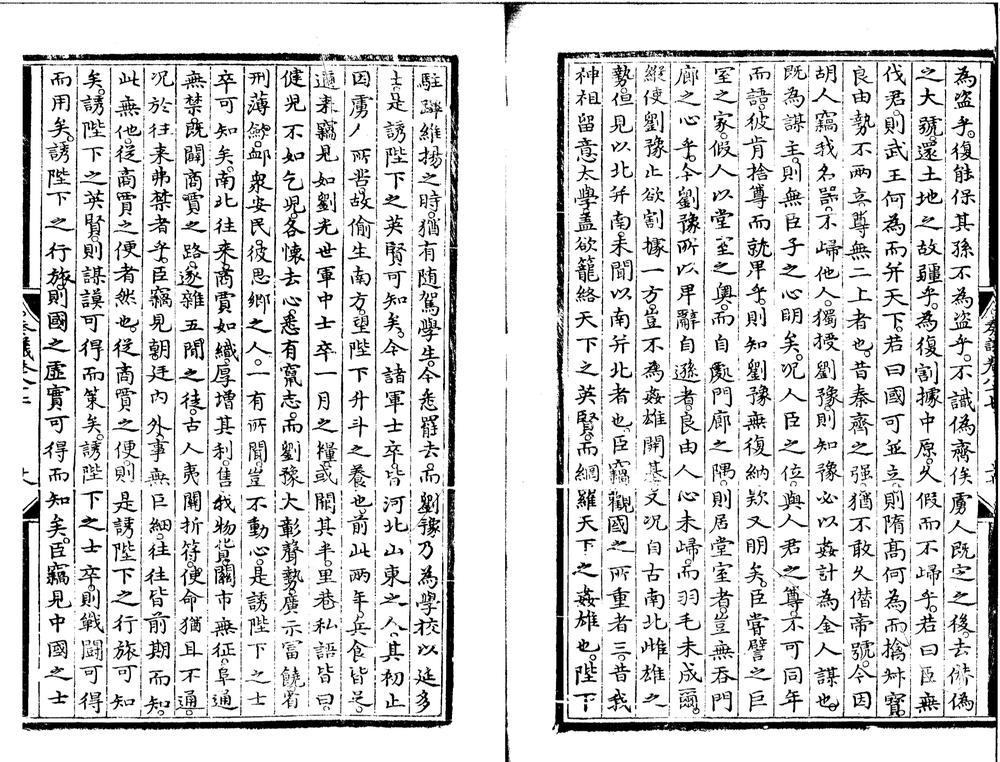 為盜乎復能保其孫不為盜乎不識偽齊俟虜人既定之後去僭偽
之大號還土地之故疆乎為復割據中原久假而不歸乎若曰臣無
伐君則武王何為而并天下若曰國可並立則隋髙何為而擒叔寶
良由勢不兩立尊無二上者也昔秦齊之强猶不敢久僭帝號今因
胡人竊我名器不歸他人獨授劉豫則知豫必以姦計為金人謀也
既為謀主則無臣子之心明矣况人臣之位與人君之尊不可同年
而語彼肯捨尊而就卑乎則知劉豫無復納欵又明矣臣甞譬之巨
室之家假人以堂室之奧而自處門廊之隅則居堂室者豈無吞門
廊之心乎今劉豫所以卑辭自遜者良由人心未歸而羽毛未成爾
縱使劉豫止欲割據一方豈不為姦雄開基又况自古南北雌雄之
勢但見以北并南未聞以南并北者也臣竊觀國之所重者三昔我
神祖留意太學盖欲籠絡天下之英賢而網羅天下之姦雄也陛下
駐蹕維揚之時猶有随駕學生今悉罷去而劉豫乃為學校以延多
士是誘陛下之英賢可知矣今諸軍士卒皆河北山東之人其初止
因虜人所㫮故偷生南方望陛下升斗之養也前此兩年兵食皆足
邇来竊見如劉光世軍中士卒一月之糧或闕其半里巷私語皆曰
健兒不如乞兒各懷去心悉有竄志而劉豫大彰聲勢廣示富饒省
刑薄斂䘏衆安民彼思鄉之人一有所聞豈不動心是誘陛下之士
卒可知矣南北往來商賈如織厚增其利售我物貨關市無征阜通
無禁既闢商賈之路遂雜五間之徒古人夷關折符使命猶且不通
况於往来弗禁者乎臣竊見朝廷内外事無巨細往往皆前期而知
此無他從商賈之便者然也從商賈之便則是誘陛下之行旅可知
矣誘陛下之英賢則謀謨可得而策矣誘陛下之士卒則戰鬪可得
而用矣誘陛下之行旅則國之虛實可得而知矣臣竊見中國之士